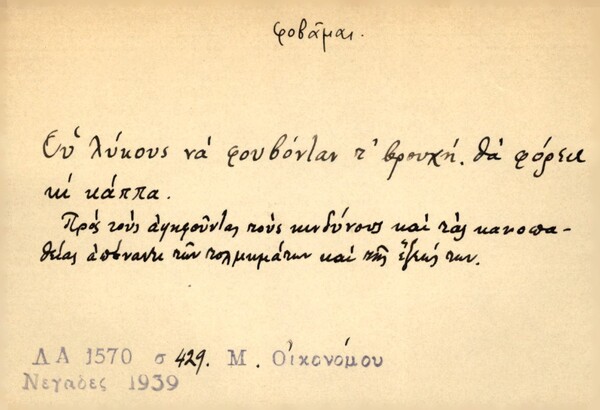 φοβᾶμαι.
Οὑ λύκους νά φουβόνταν τ' βρουχή. θά φόρειε
κί κάππα.
Πρός τούς ἀψηφοῦντας τούς κινδύνους καί τάς κακοπα-
θείας ἀπέναντι τῶν τολμημάτων καί τῆς ἕξεώς των.
ΛΑ 1570 σ 429. Μ. Οἰκονόμου
Νεγαδες 1939